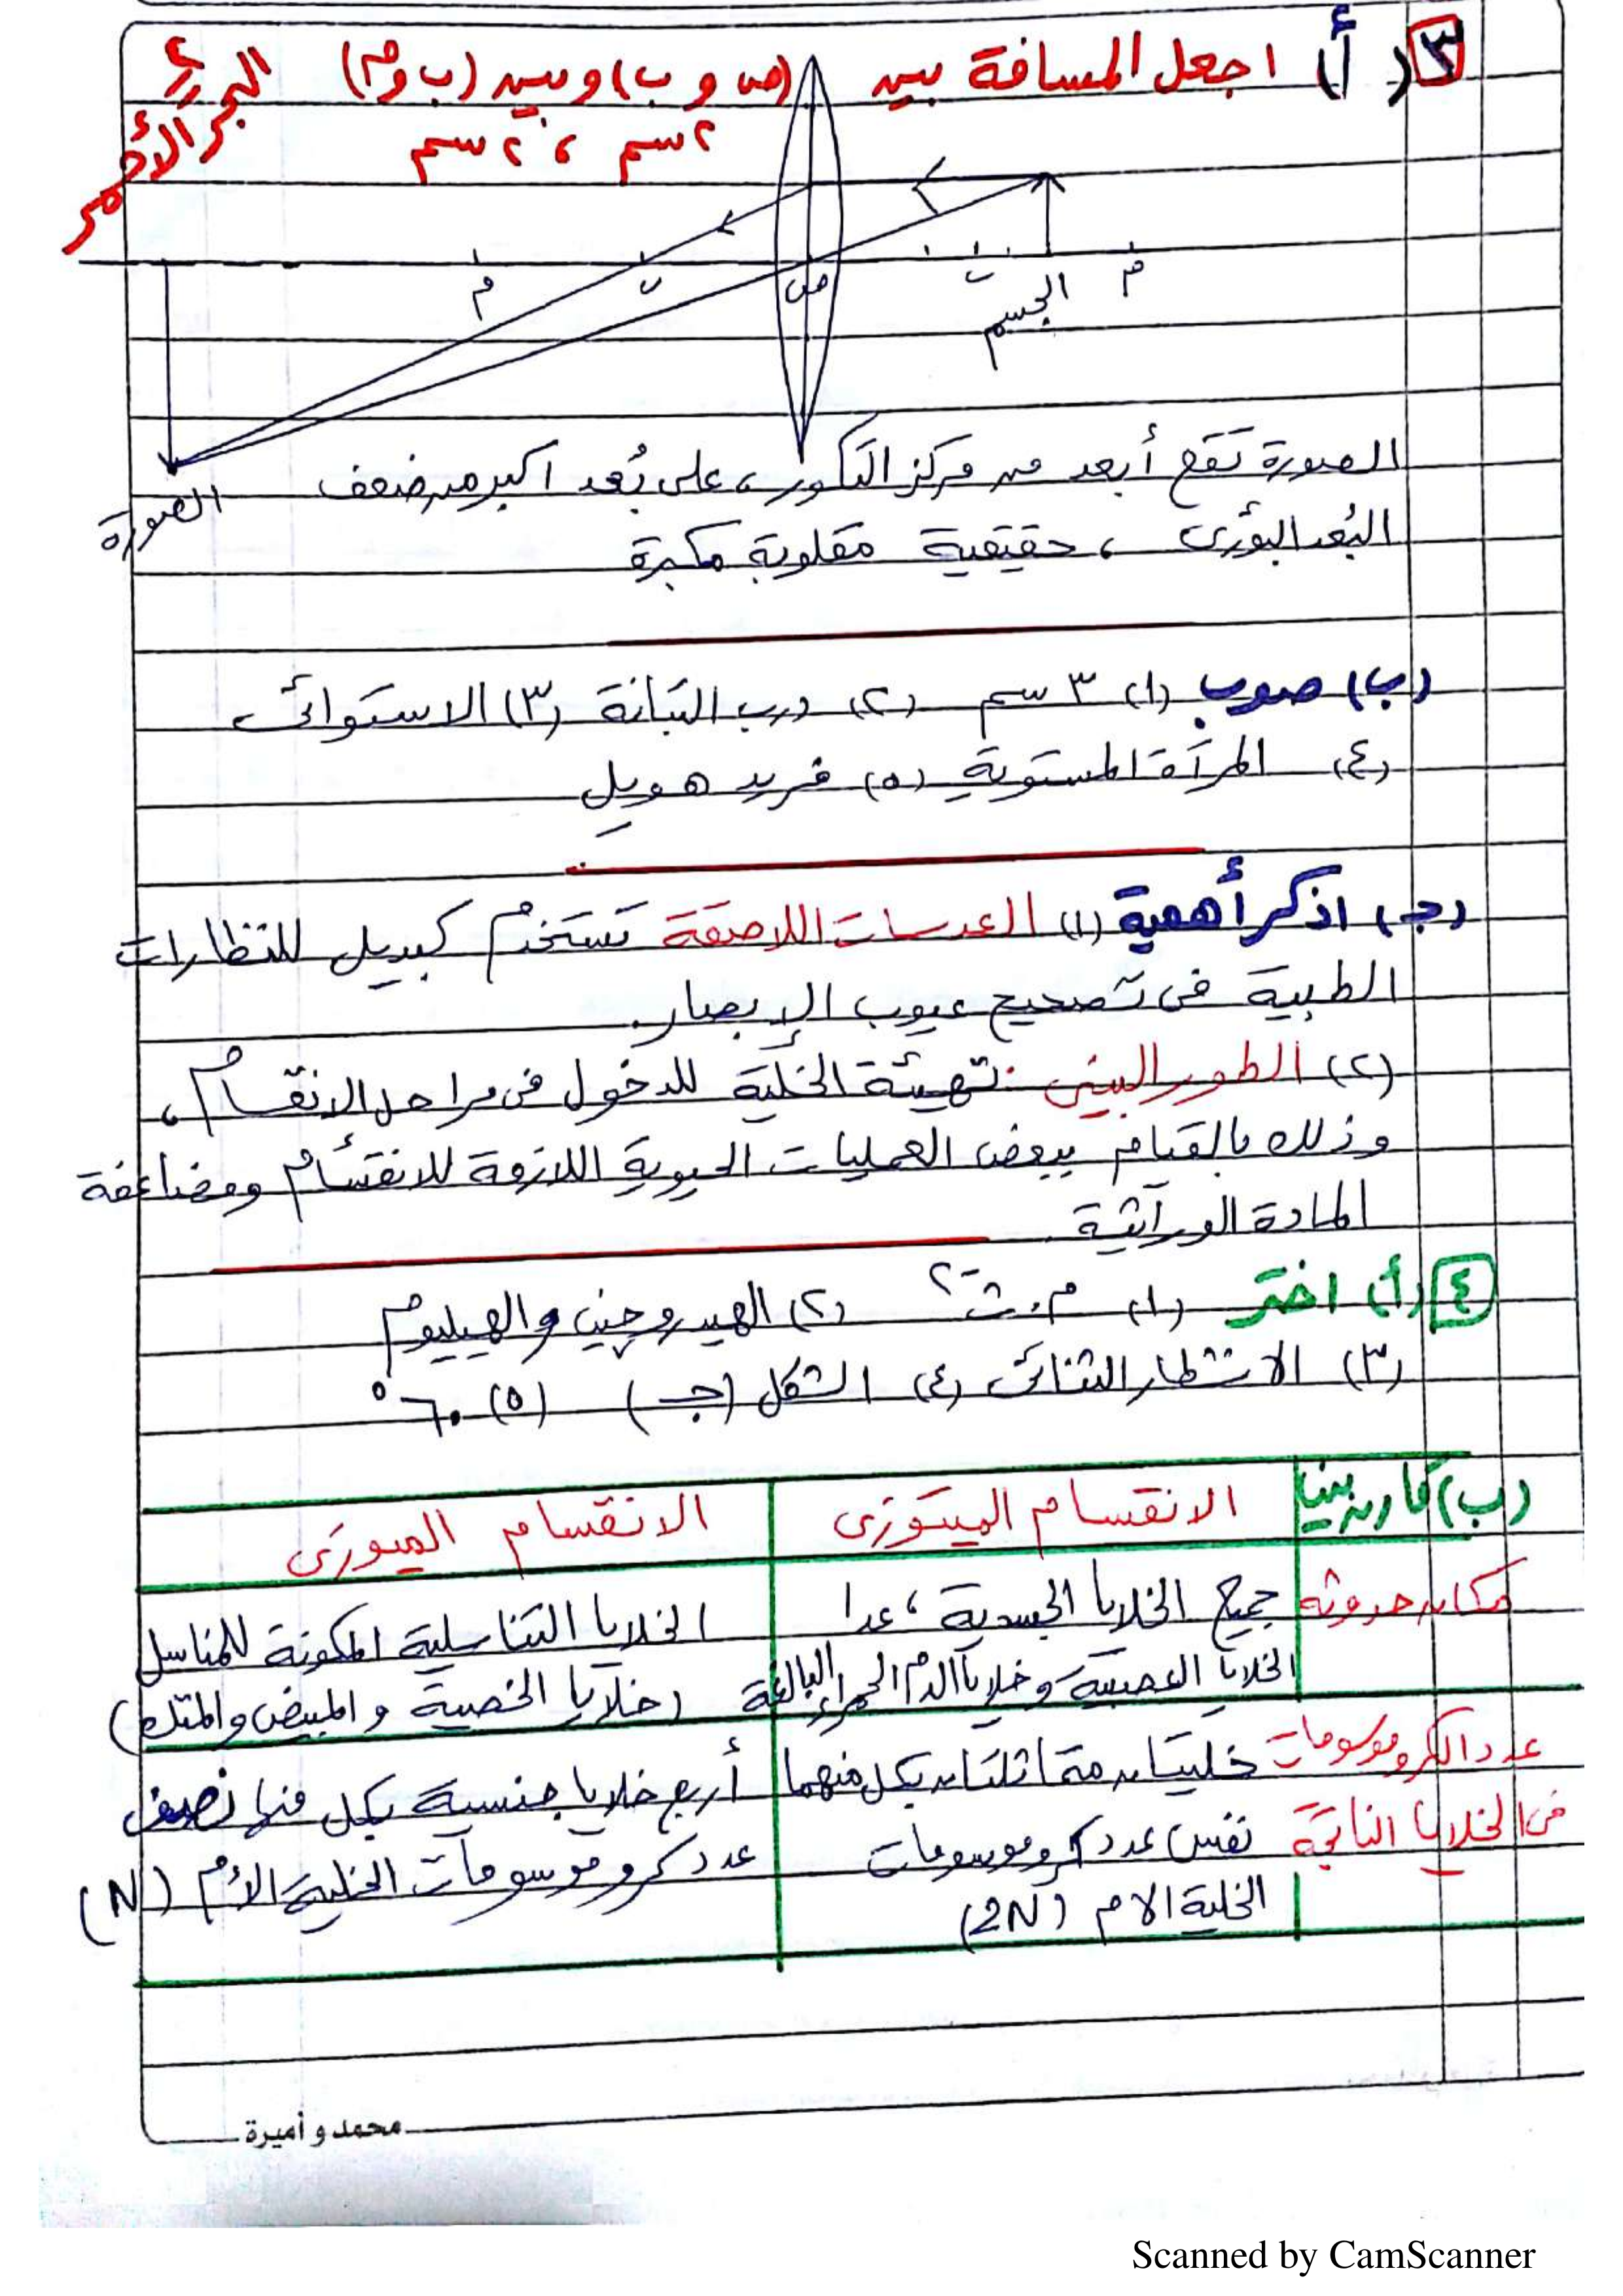 ٣ (أ) اجعل المسافة بين (ص و ب) وبين (ب و م)
٢سم ، ٢سم
البحر الأحمر
م
ب
ص
ب
م
الجسم
الصورة
الصورة تقع أبعد من مركز التكور، على بُعد اكبر من ضعف
البُعد البؤرى ، حقيقية مقلوبة مكبرة
(ب) صوب (١) ٣ سم (٢) درب التبانة (٣) الاستوائى
(٤) المرآة المستوية (٥) فريد هويل
(جـ) اذكر أهمية (١) العدسات اللاصقة تستخدم كبديل للنظارات
الطبية فى تصحيح عيوب الإبصار.
(٢) الطور البينى : تهيئة الخلية للدخول فى مراحل الانقسام ،
وذلك بالقيام ببعض العمليات الحيوية اللازمة للانقسام ومضاعفة
المادة الوراثية
٤ (أ) اختر (١) م.ث-٢ (٢) الهيدروچين والهيليوم
(٣) الانشطار الثنائى (٤) الشكل (جـ) (٥) ٦٠°
(ب) قارن بين الانقسام الميتوزى الانقسام الميوزى
مكان حدوثه جميع الخلايا الجسدية ، عدا الخلايا التناسلية المكونة للمناسل
الخلايا العصبية وخلايا الدم الحمراء البالغة (خلايا الخصية والمبيض والمتك)
عدد الكروموسومات خليتان متماثلتان بكل منهما أربع خلايا جنسية بكل منها نصف
فى الخلايا الناتجة نفس عدد كروموسومات عدد كروموسومات الخلية الأم (N)
الخلية الام (2N)
محمد و أميرة
Scanned by CamScanner